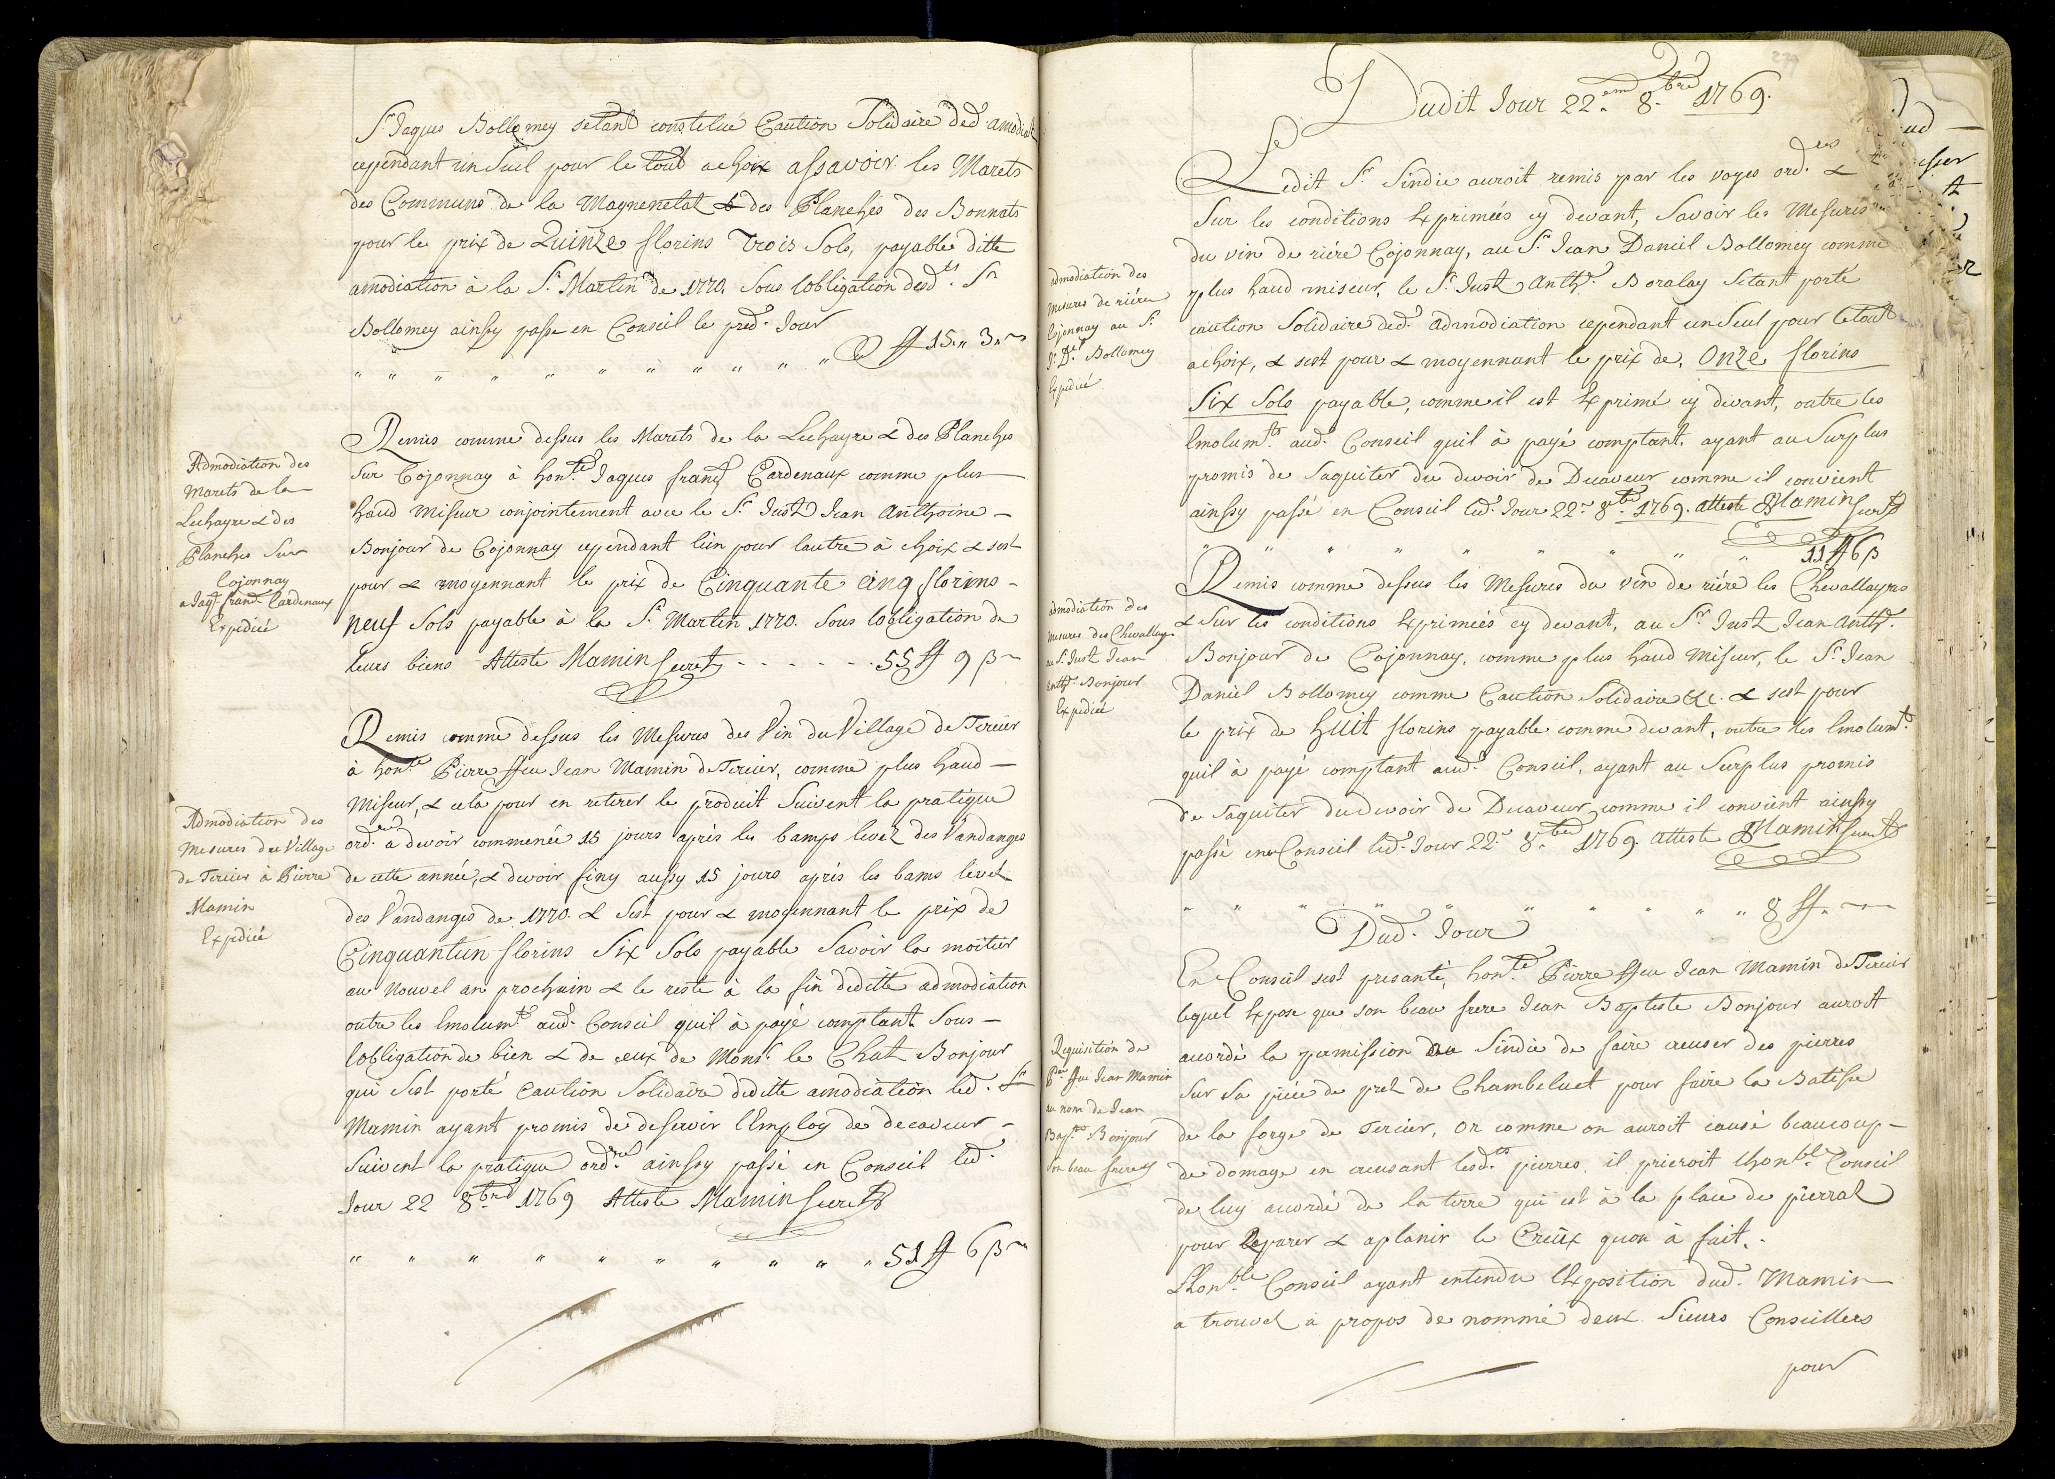 Sr Jaques Bollomey setant constitué Caution Solidaire dedt amodiat
cependant un Seul pour le tout a choix assavoir les Marets
des Communs de la Maynenetat & des Planches des Bonnats
pour le prix de Quinze florins Trois Sols, payable ditte
amodiation à la St Martin de 1770. Sous lobligation desdts Sr
Bollomey ainssy passe en Conseil le pred. Jour
" " " " " " " " " " " ff 15 " 3 "
Admodiation des
Marets de la
Lechayre & des
Planches Sur
Cojonnay
a Jaqs franç Cardenaux
Expedié
Remis comme dessus les Marets de la Lechayre & des Planches
Sur Cojonnay à honte Jaques franç Cardenaux comme plus
haud Miseur conjointement avec le Sr Just Jean Anthoine
Bonjour de Cojonnay cependant lun pour lautre à choix & sest
pour & moyennant le prix de Cinquante Cinq florins
neuf Sols payable à la St Martin 1770. Sous lobligation de
leurs biens Atteste Mamin Secret . . . . . . 55 ff 9 β
Admodiation des
Mesures du Village
de Tercier à Pierre
Mamin
Expedié
Remis comme dessus les Mesures des Vin du Village de Tercier
à honte Pierre ffeu Jean Mamin de Tercier, comme plus haud
Miseur, & cela pour en retirer le produit Suivent la pratique
ordre a devoir commencé 15 jours après les bamps levez des Vandanges
de cette année, & devoir finy aussy 15 jours après les bams levez
des Vandanges de 1770. & Sest pour & moyennant le prix de
Cinquantun florins Six Sols payable Savoir la moitier
au nouvel an prochain & le reste à la fin deditte admodiation
outre les Emolumts aud. Conseil quil à payé comptant Sous
lobligation de bien & de ceux de Monsr le Chat Bonjour
qui Sest porté Caution Solidaire deditte amodiation led. Sr
Mamin ayant promis de deservir lEmploy de decaveur
Suivent la pratique ordre ainssy passé en Conseil led.
Jour 22 8bre 1769 Atteste Mamin Secret
" " " " " " " " " " 51 ff 6 β
Dudit Jour 22em 8bre 1769.
Ledit Sr Sindic auroit remis par les voyes ordres &
Sur les conditions Exprimées cy devant, Savoir les Mesures
du vin de riére Cojonnay, au Sr Jean Daniel Bollomey comme
plus haud miseur, le Sr Just Anthe Boralay Setant porté
caution Solidaire ded. admodiation cependant un Seul pour le tout
a choix, & sest pour & moyennant le prix de, Onze florins
Six Sols payable, comme il est Exprimé cy devant, outre les
Emolumts aud. Conseil quil à payé comptant. ayant au Surplus
promis de Saquiter du devoir de Decaveur comme il convient
ainssy passé en Conseil led. Jour 22e 8bre 1769. atteste Mamin Secret
" " " " " " " " " 11 ff 6 β
admodiation des
mesures de riére
Cojonnay au Sr
Jn Dl Bollomey
Expedié
Remis comme dessus les Mesures du vin de riére les Chevallayres
& Sur les conditions Exprimées cy devant, au Sr Just Jean Anthe
Bonjour de Cojonnay, comme plus haud Miseur, le Sr Jean
Daniel Bollomey comme Caution Solidaire &c. & sest pour
le prix de Huit florins payable comme devant, outre les Emolumts
quil à payé comptant aud. Conseil, ayant au Surplus promis
de Saquiter du devoir de Decaveur comme il convient ainssy
passé en Conseil led. Jour 22e 8bre 1769. atteste Mamin Secret
" " " " " " " " " " 8 ff "
admodiation des
mesures des Chevallay
au Sr Just Jean
Anthe Bonjour
Expedié
Dud. Jour
En Conseil sest presanté, honte Pierre ffeu Jean Mamin de Tercier
lequel Expose que son beau frere Jean Baptiste Bonjour auroit
acordé la permission au Sindic de faire creuser des pierres
Sur Sa piéce de prez de Chambeluet pour faire la Batisse
de la forge de Tercier, or comme on auroit causé beaucoup
de domage en creusant lesdts pierres, il prieroit lhonble Conseil
de luy acordé de la terre qui est à la place de pierraz
pour Reparer & aplanir le Creux quon à fait.
Lhonble Conseil ayant entendu lExposition dud. Mamin
a trouvé à propos de nommé deux Sieurs Conseillers
pour
Requisition de
Pre ffeu Jean Mamin
au nom de Jean
Bapte Bonjour
son beau frere